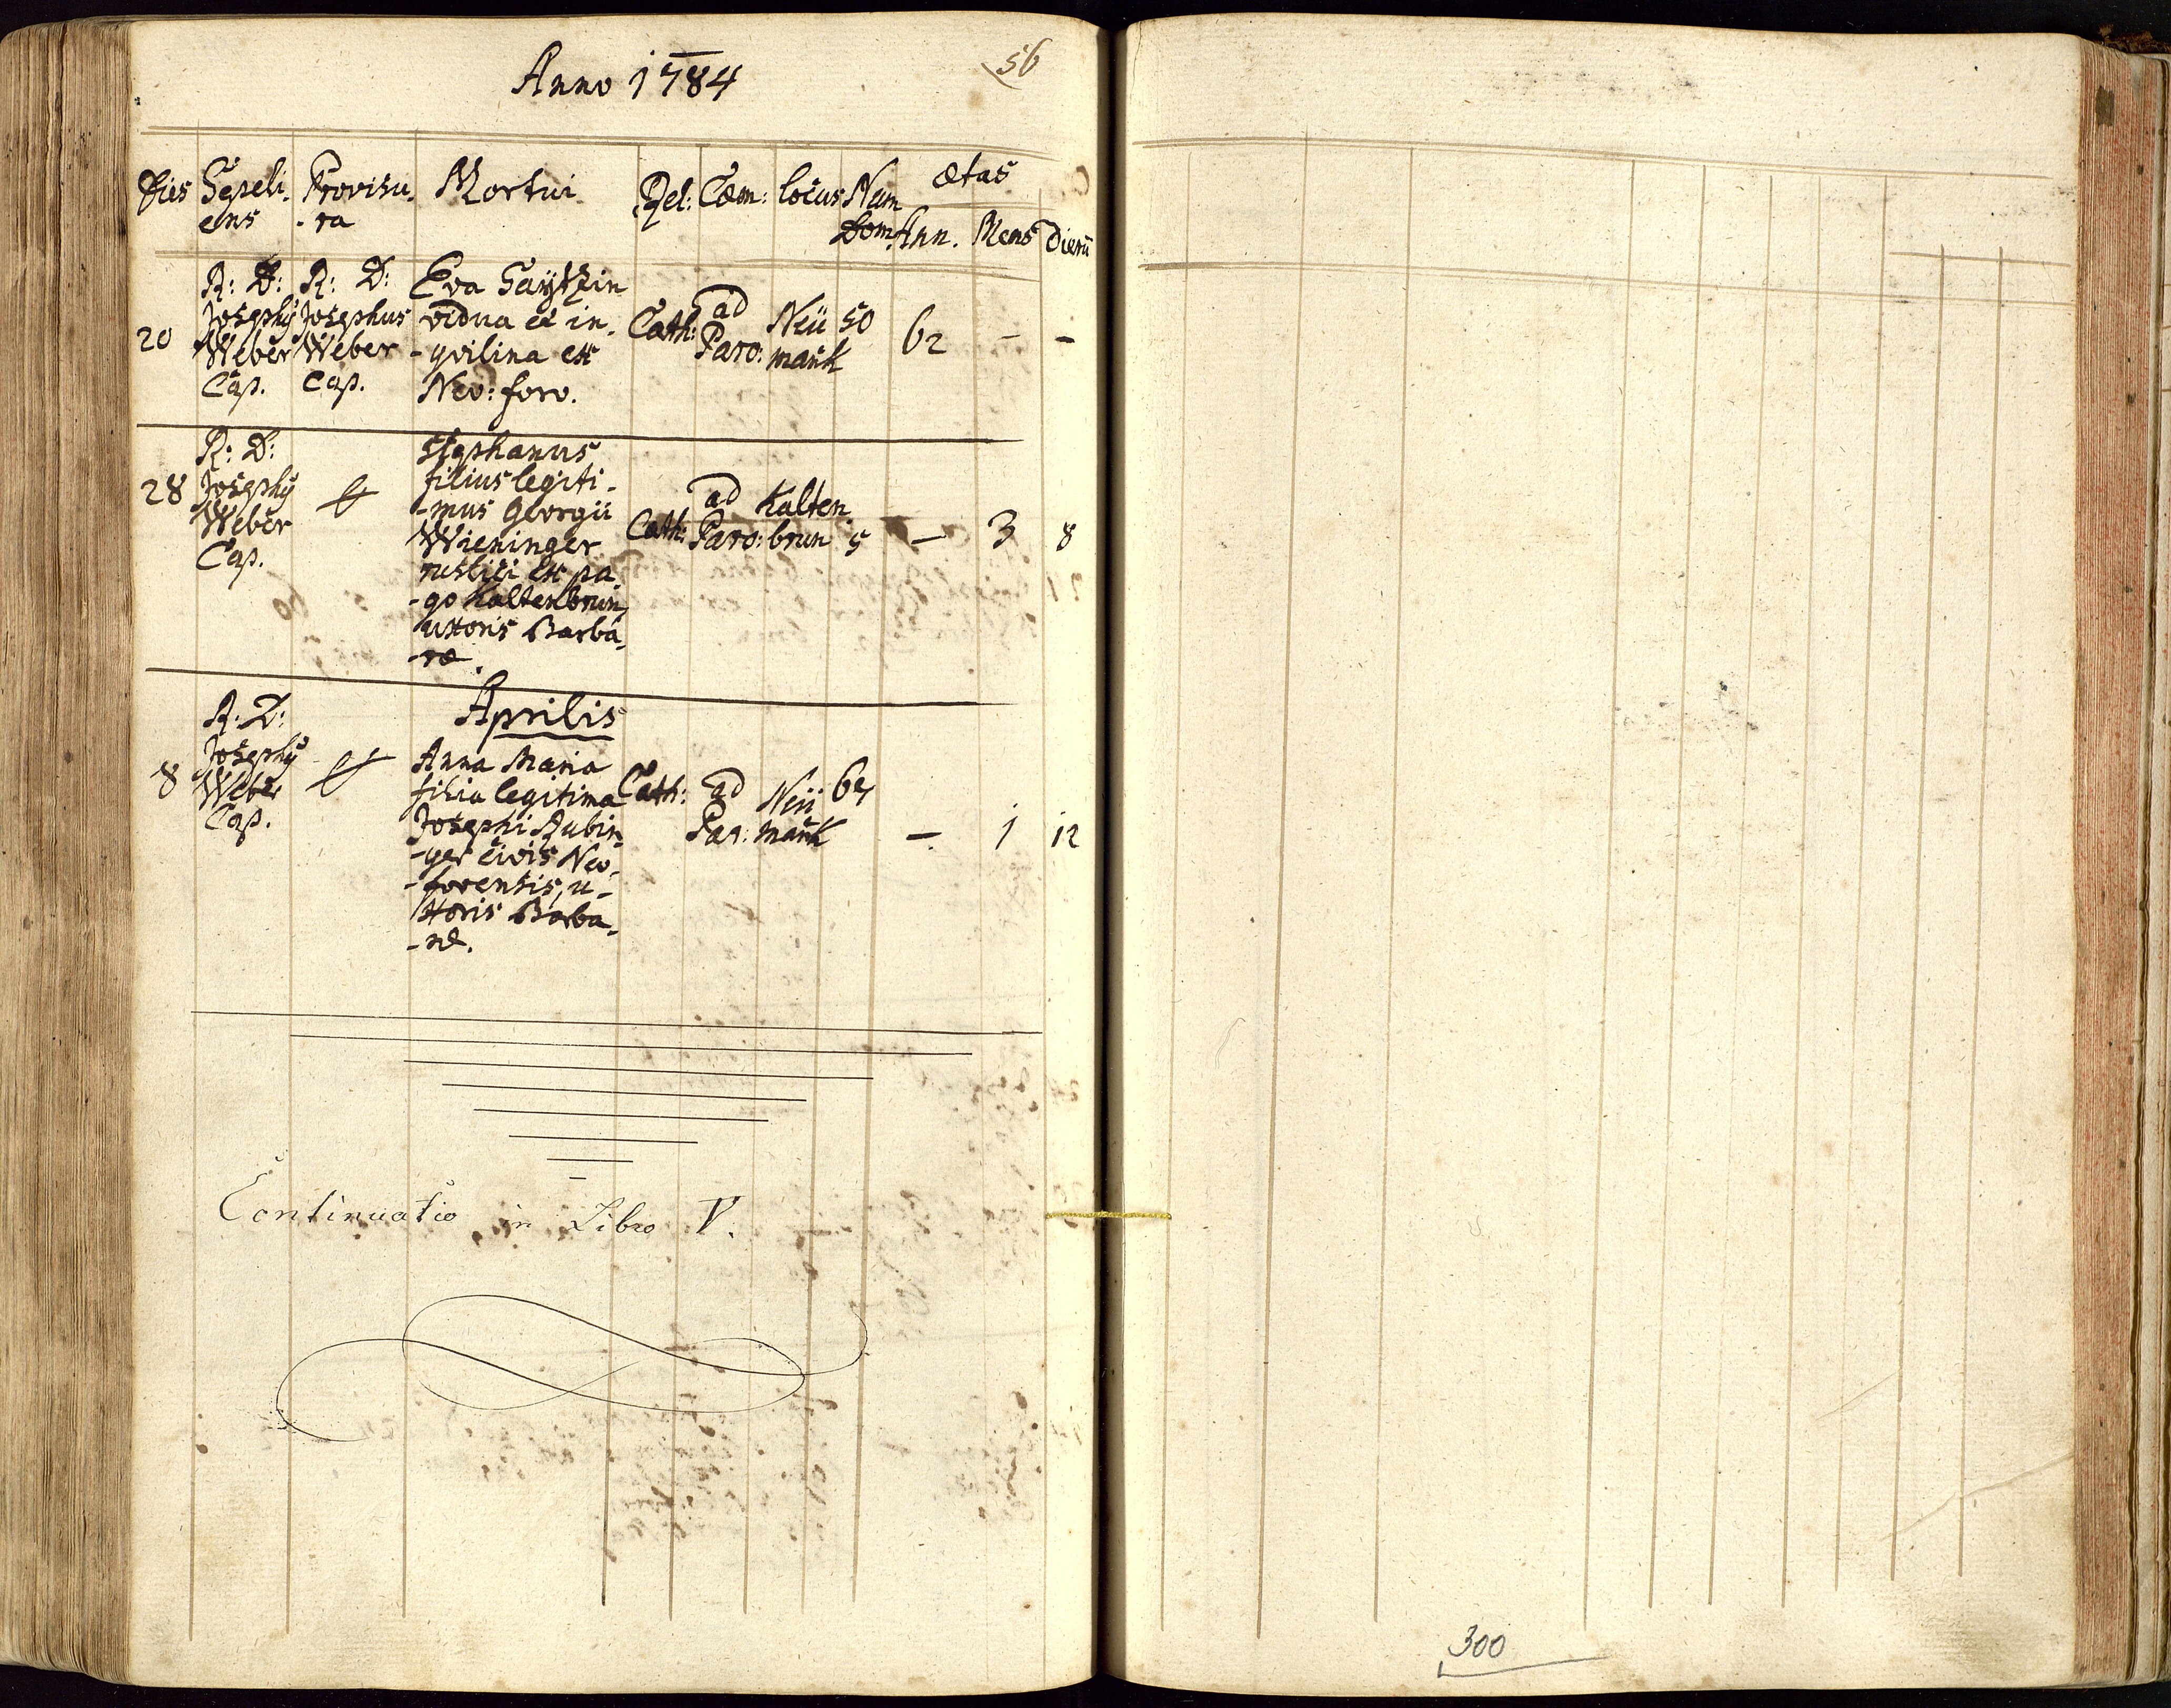 56
Anno 1784
Dies Sepeli- Provisu- Mortui Rel: Cœm: locus Num ætas
ens -ra Dom. Ann. Mens Dierũ
20
R: D:
Josephų
Weber
Cap.
R: D:
Josephus
Weber
Cap.
Eva
vidua et in-
-qvilina ex
Neo: foro.
Cath:
ad
Paro:
Neü
markt
50
62 - -
28
R: D:
Josephų
Weber
Cap.
Stephanus
filius legiti-
-mus Georgii
Wieninger
rustici ex pa-
-go Kaltenbrun,
uxoris Barba-
-ræ.
Cath:
ad
Paro:
Kalten
brun
5
- 3 8
Aprilis
8
R: D:
Josephų
Weber
Cap.
Anna Maria
filia legitima
Josephi Rubin-
-ger civis Neo-
-forensis, u-
xoris Barba-
-ræ.
Cath:
ad
Par:
Neü
markt
- 1 12
Continuatio in Libro V.
300